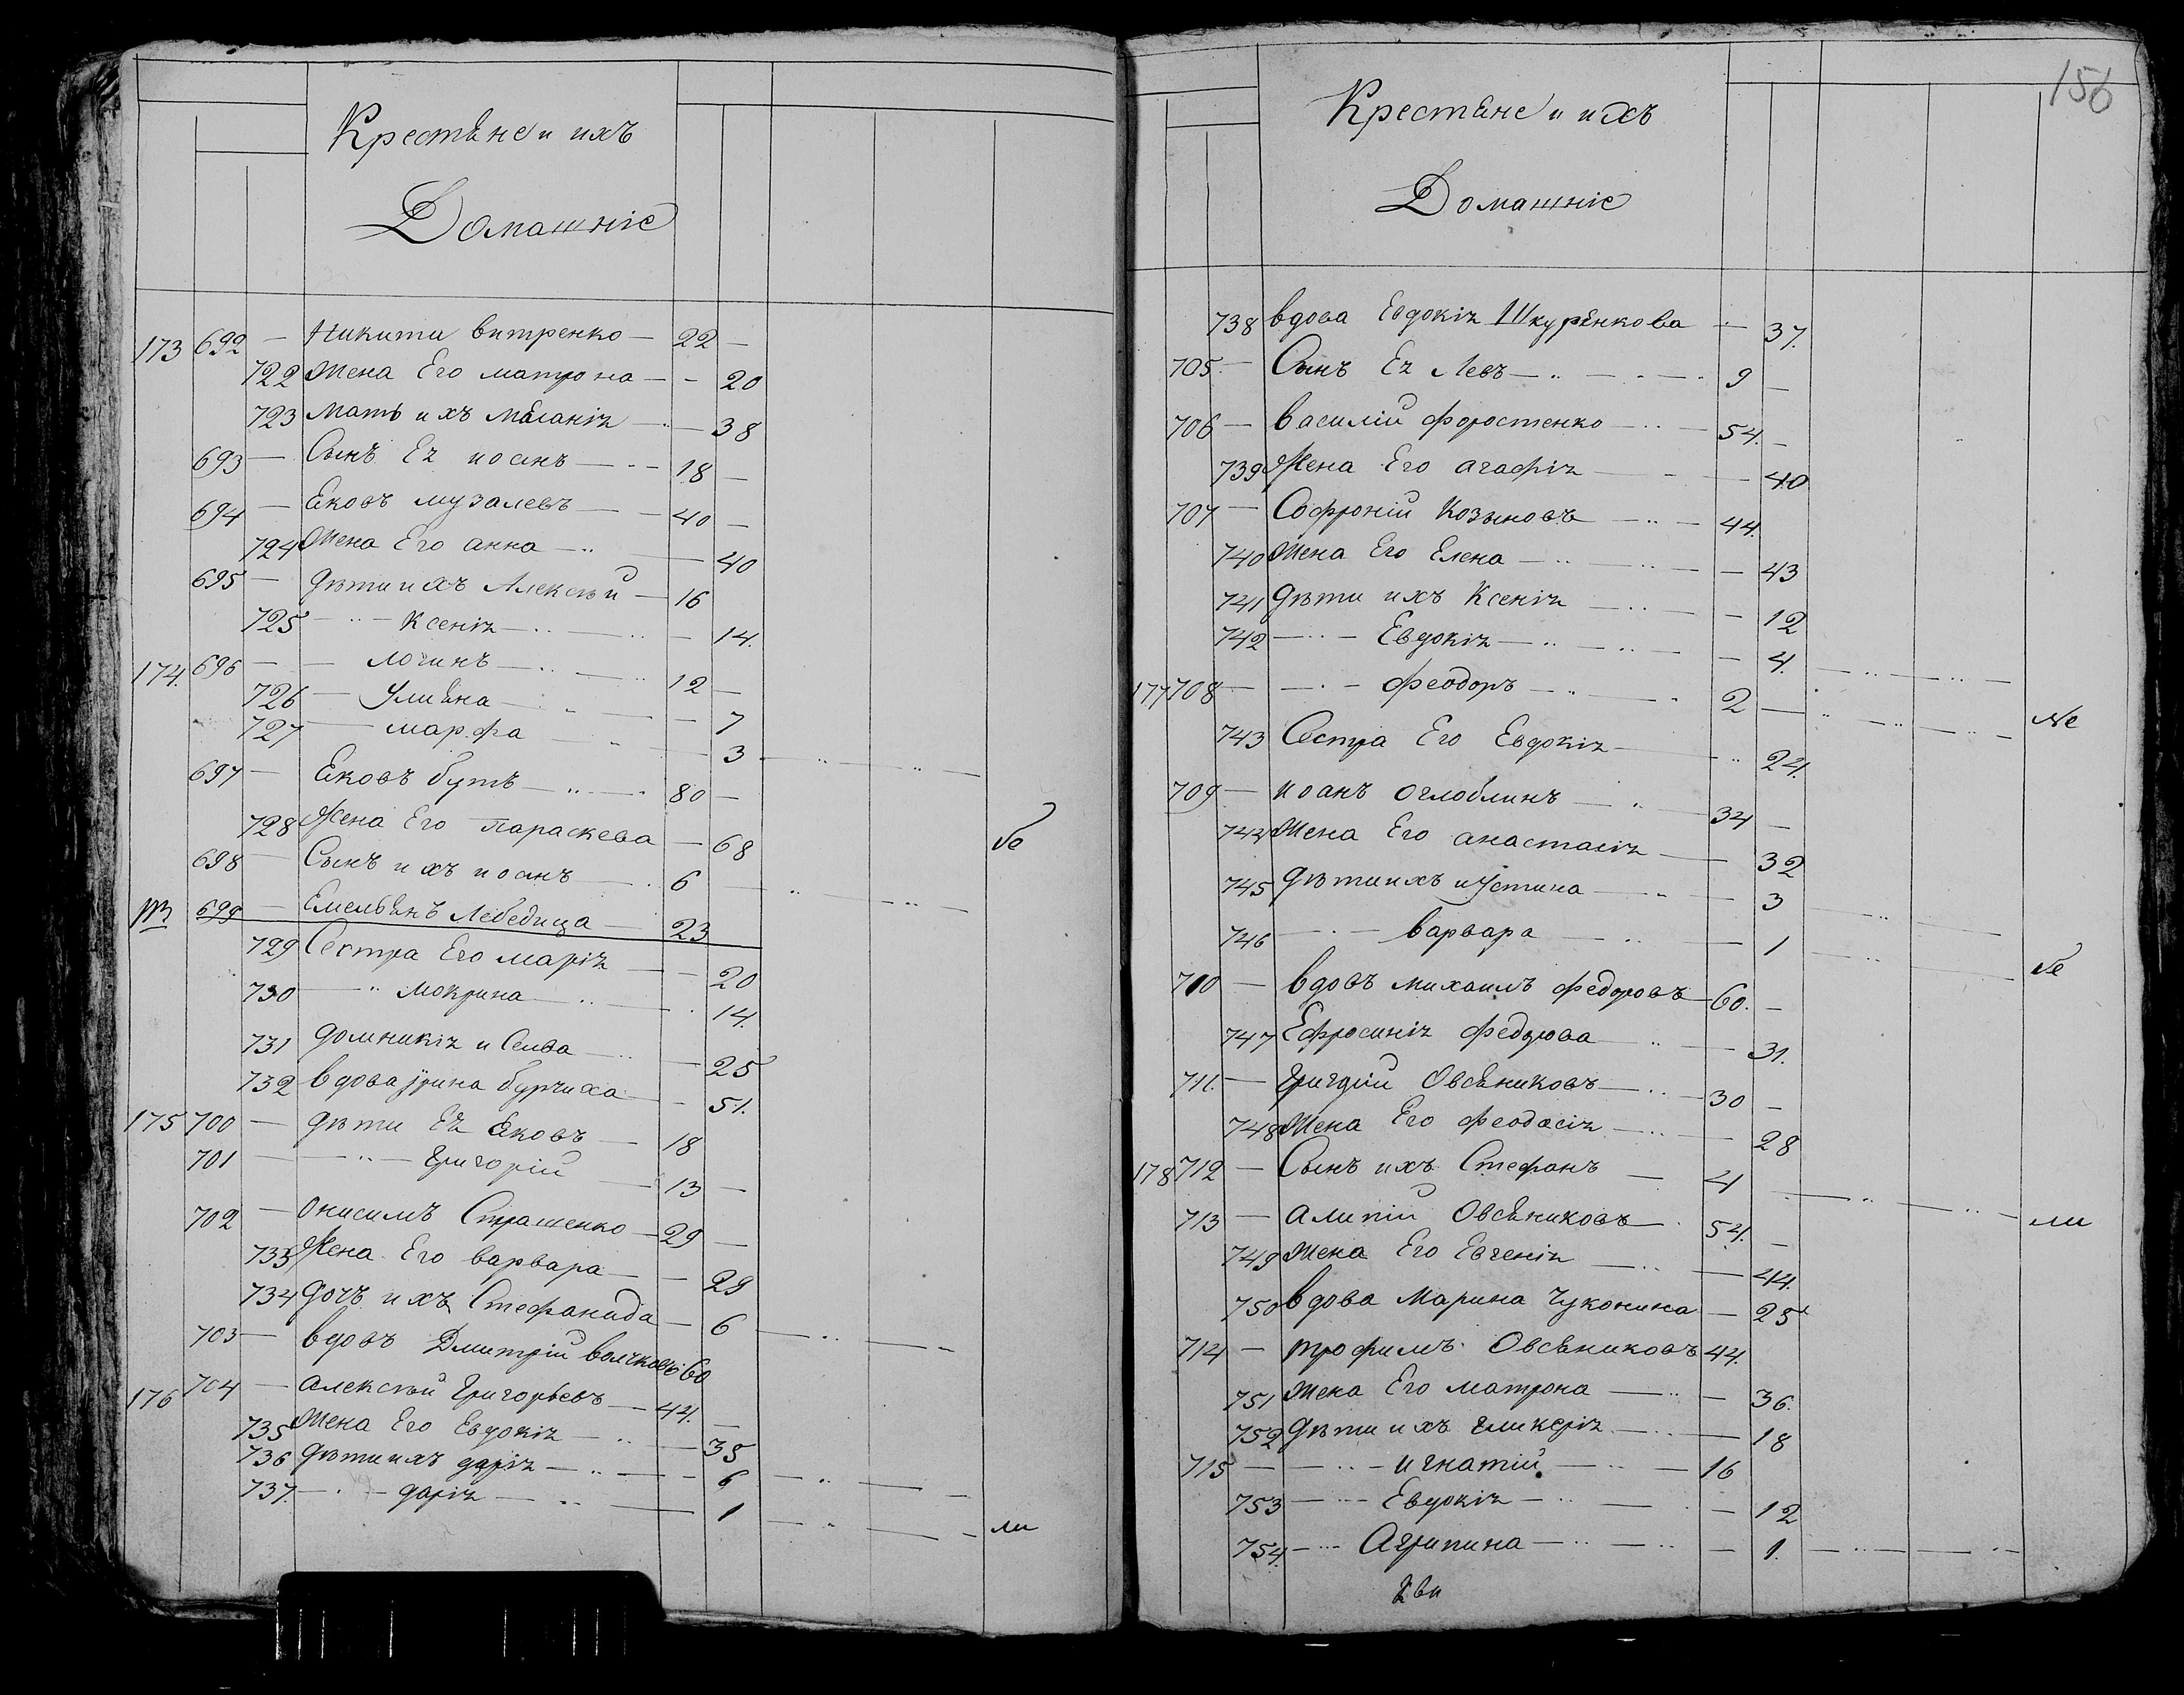 Крестѣне и ихъ
Домашніе
173 692 — Никита витренко — 22 —
722 Жена Его матрона — — 20
723 мать ихъ мѣланія — — 38
693 — Сынъ Ея иоанъ — 18 —
694 — Ѣковъ музалевъ — 40 —
724 Жена Его анна — — 40
695 — дѣти ихъ Алексѣй — 16
725 — Ксенія — — 14.
174. 696 — — логинъ — 12 —
726 — Улиѣна — — 7
727 — марфа — — 3
697 — Ѣковъ бутъ — 80 —
728 Жена Его Параскева — 68
698 — Сынъ ихъ иоанъ — 6
699 — Емельѣнъ Лебедица — 23
729 Сестра Его марія — — 20
730 — мокрина — 14.
731 домникія и Сева — — 25
732 вдова ирина бурчиха — 51.
175 700 — дѣти Ея Ѣковъ — 18
701 — — Григорій — 13 —
702 — Онисимъ Страшенко — 29 —
733 Жена Его варвара — — 29
734 дочь ихъ Стефанида — 6
703 — вдовъ Дмитрій волчковъ 60
176 704 — алексѣй Григорьевъ — 44. —
735 Жена Его Евдокія — — 35
736 дѣти ихъ дарія — — 6
737. — дарія — 1
ли
156
Крестѣне и ихъ
Домашніе
738 вдова Евдокія Шкурѣнкова — 37.
705. — Сынъ Ея Левъ — 9 —
706 — василій форостенко — 54. —
739 Жена Его агафія — — 40
707 — Софроній Козыновъ — 44.
740 Жена Его Елена — — 43
741 дѣти ихъ Ксенія — — 12
742 — Евдокія — — 4.
177 708 — — феодоръ — 2 —
743 Сестра Его Евдокія — 24.
709 — иоанъ оглоблинъ — 34 —
744 Жена Его анастасія — 32
745 дѣти ихъ иустина — — 3
746 — варвара — — 1
710 — вдовъ михаилъ федоровъ — 60. —
747 Ефросинія федорова — 31.
711. — Григорій Овсѣниковъ — 30 —
748 Жена Его феодосія — — 28
178 712 — Сынъ ихъ Стефанъ — 4
713 — алипій Овсѣниковъ — 54. —
ли
749 Жена Его Евгенія — 44.
750 вдова Марина Чуконина — 25
714 — трофимъ Овсѣниковъ 44.
751 Жена Его матрона — — 36.
752 дѣти ихъ гликерія — — 18
715 — — игнатій — 16
753 — Евдокія — — 12
754. — Агрипина — — 1.